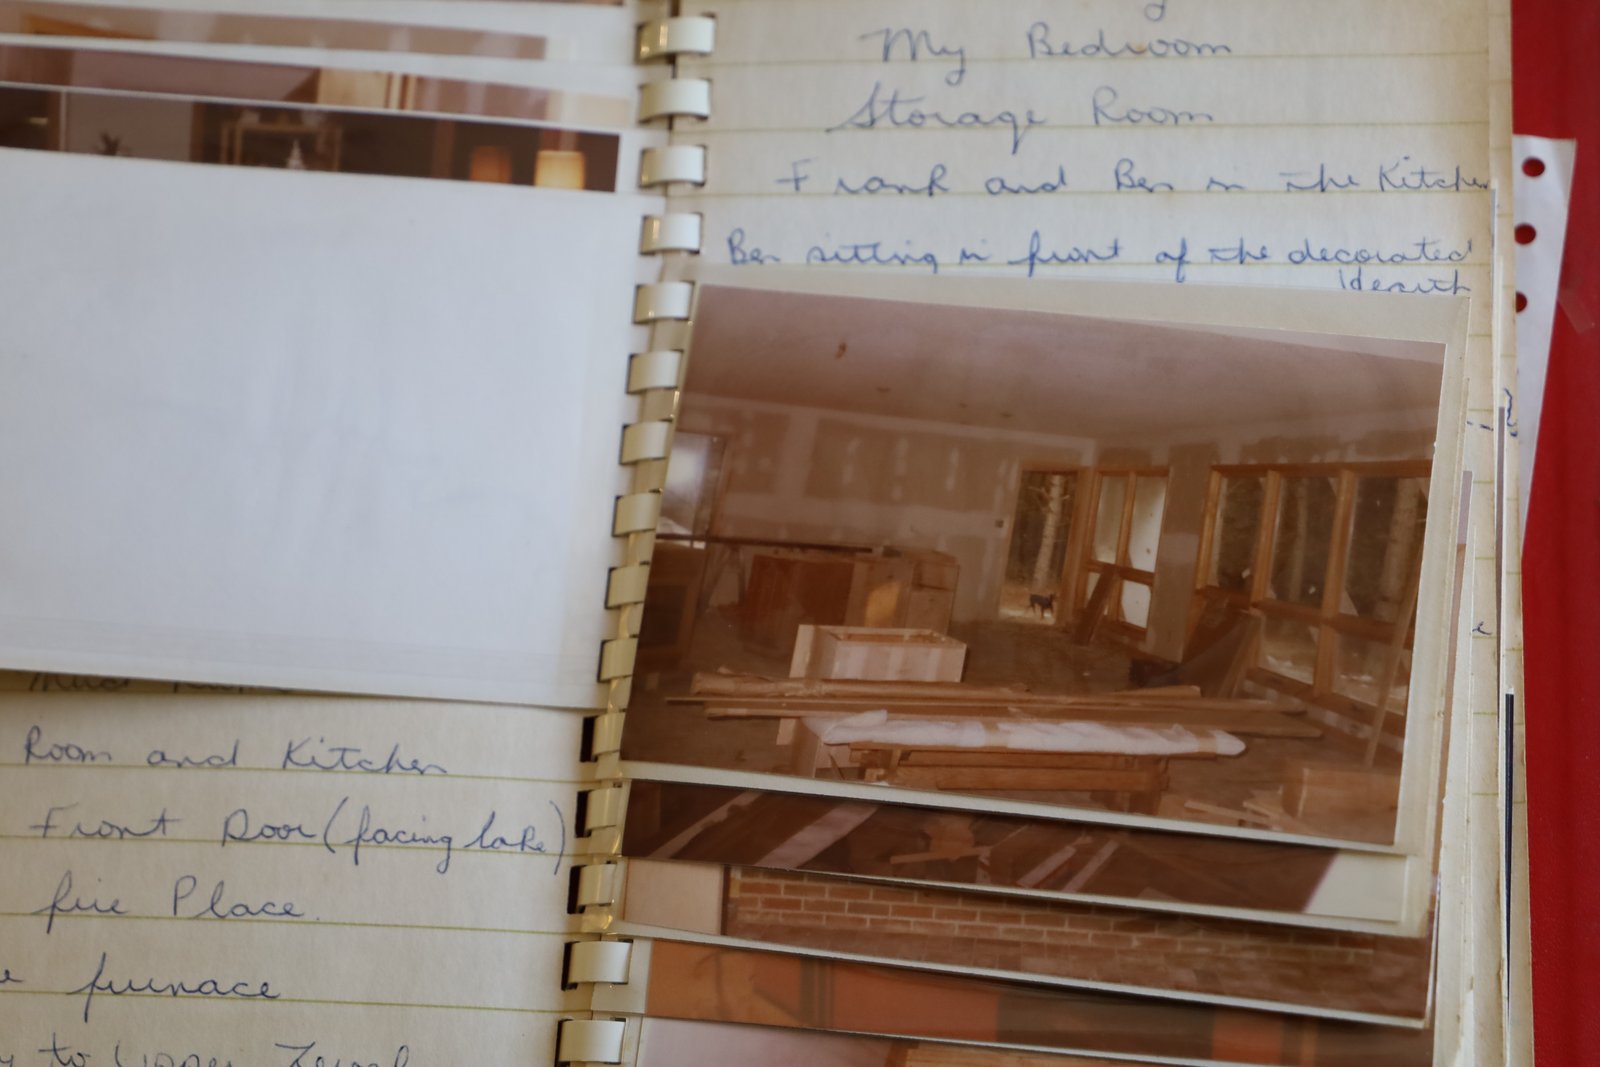 Room and Kitchen
Front Door (facing lake)
fire Place.
furnace
to Upper Level
My Bedroom
Storage Room
Frank and Ben in the Kitchen
Ben sitting in front of the decorated